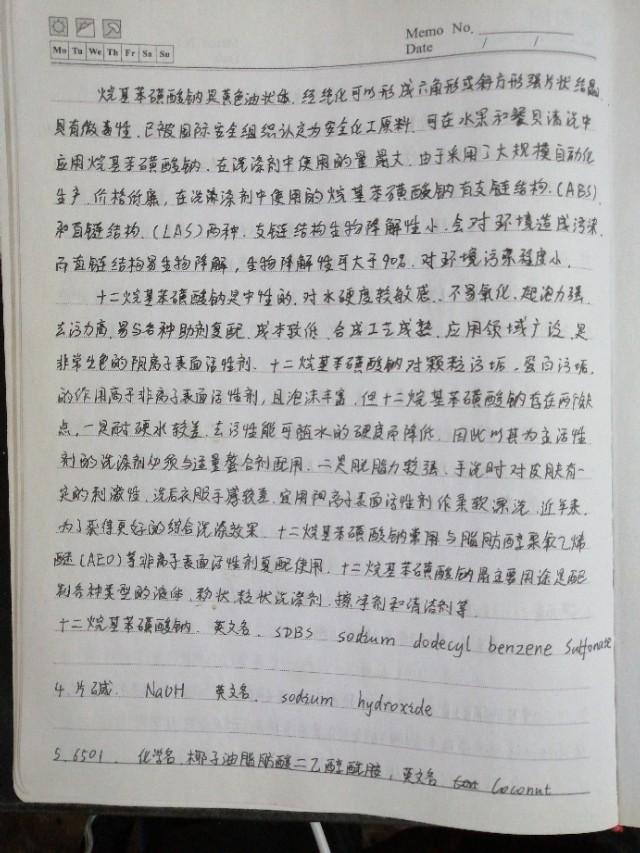 Memo No.
Mo Tu We Th Fr Sa Su
Date / /
烷基苯磺酸钠是黄色油状体，经纯化可以形成六角形或斜方形强片状结晶
具有微毒性，已被国际安全组织认定为安全化工原料，可在水果和餐具清洗中
应用烷基苯磺酸钠，在洗涤剂中使用的量最大，由于采用了大规模自动化
生产，价格低廉，在洗涤剂中使用的烷基苯磺酸钠有支链结构，(ABS)
和直链结构，(LAS)两种，支链结构生物降解性小，会对环境造成污染，
而直链结构易生物降解，生物降解性可大于90%，对环境污染程度小，
十二烷基苯磺酸钠是中性的，对水硬度较敏感，不易氧化，起泡力强，
去污力高，易与各种助剂复配，成本较低，合成工艺成熟，应用领域广泛，是
非常出色的阴离子表面活性剂，十二烷基苯磺酸钠对颗粒污垢，蛋白污垢，
的作用高于非离子表面活性剂，且泡沫丰富，但十二烷基苯磺酸钠存在两个缺
点，一是耐硬水较差，去污性能可随水的硬度而降低，因此以其为主活性
剂的洗涤剂必须与适量螯合剂配用，二是脱脂力较强，手洗时对皮肤有一
定的刺激性，洗后衣服手感较差，宜用阳离子表面活性剂作柔软漂洗，近年来，
为了获得更好的综合洗涤效果，十二烷基苯磺酸钠常用与脂肪醇聚氧乙烯
醚(AEO)等非离子表面活性剂复配使用，十二烷基苯磺酸钠最主要用途是配
制各种类型的液体，粉状，粒状洗涤剂，擦净剂和清洁剂等，
十二烷基苯磺酸钠，英文名，SDBS sodium dodecyl benzene sulfonate
4 片碱， NaOH 英文名， sodium hydroxide
5 6501， 化学名，椰子油脂肪醯二乙醇酰胺，英文名 Coconut